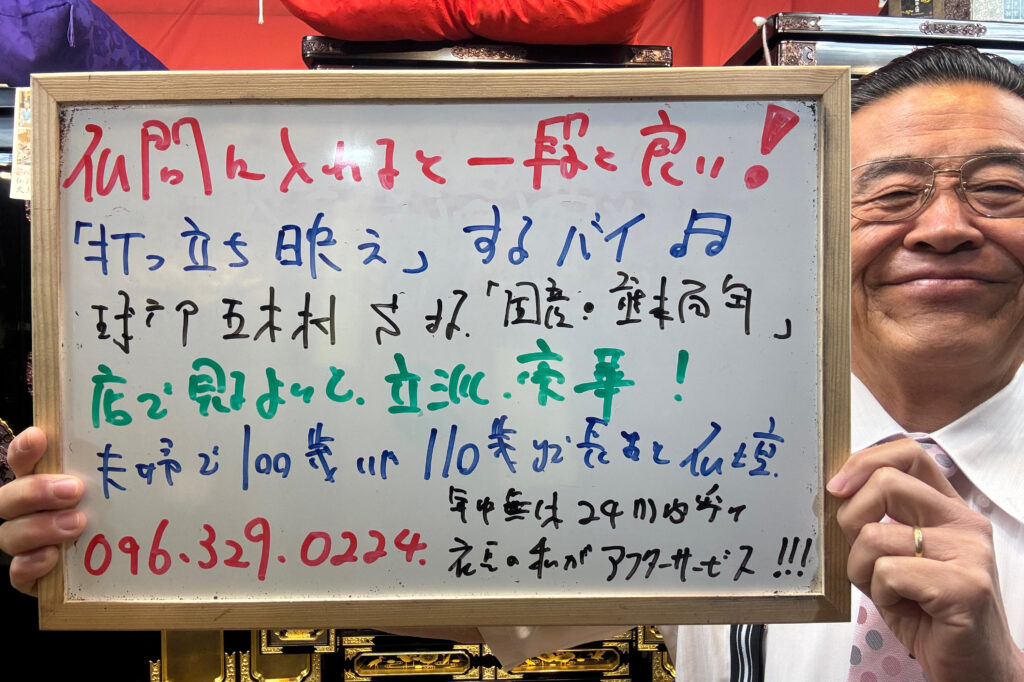 仏間に入れると一段と良い!
「打つ立ち映え」するバイ
球戸甲五木村 さま.「国産・
店で見るよりと.立派.豪華!
夫婦で100歳 110歳まで長あと仏壇.
年中無休24時
096.329.0224.
店長の私がアフターサービス!!!